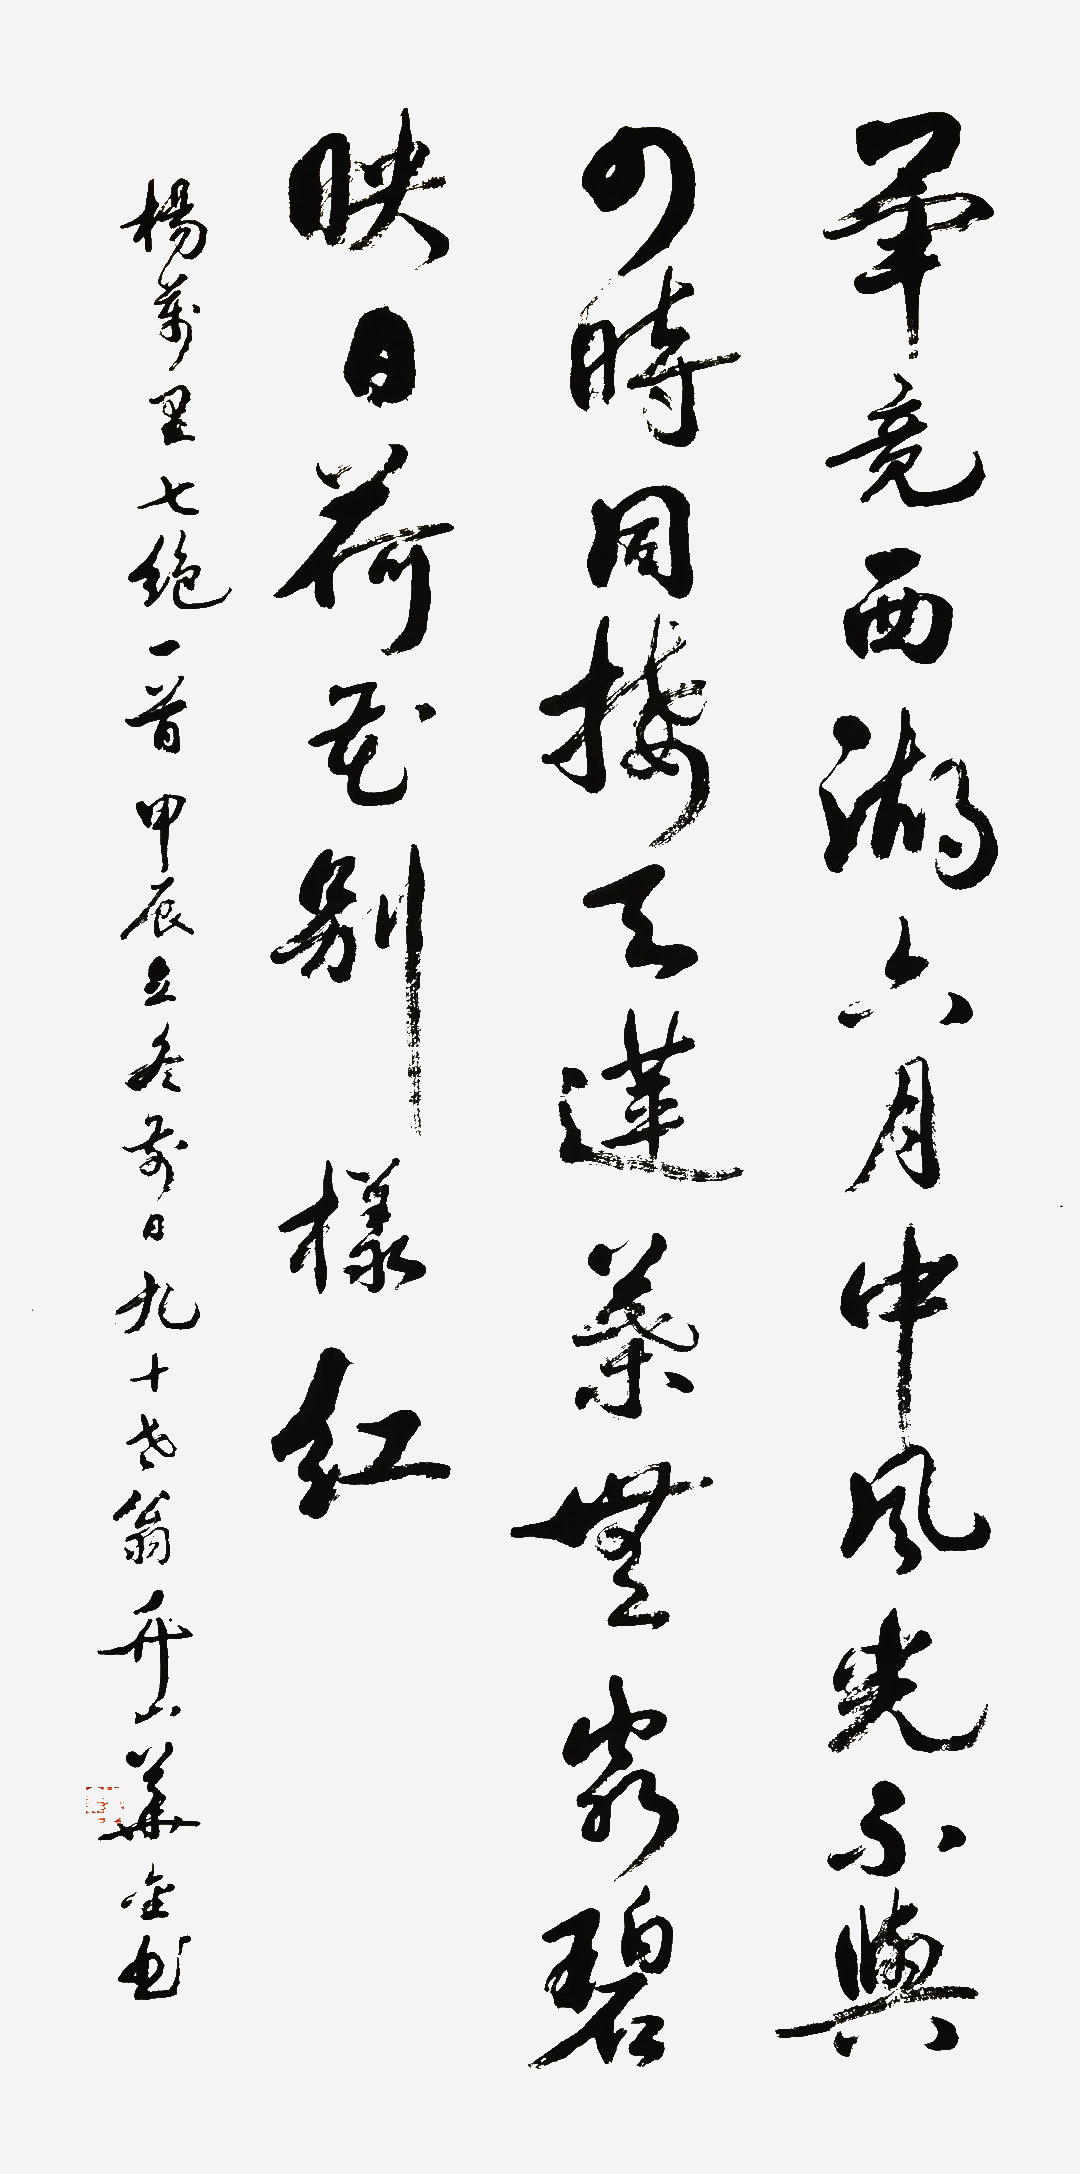 畢竟西湖六月中風光不與
四時同接天蓮葉無窮碧
映日荷花別樣紅
楊萬里七絕一首甲辰立冬前日九十老翁華金书